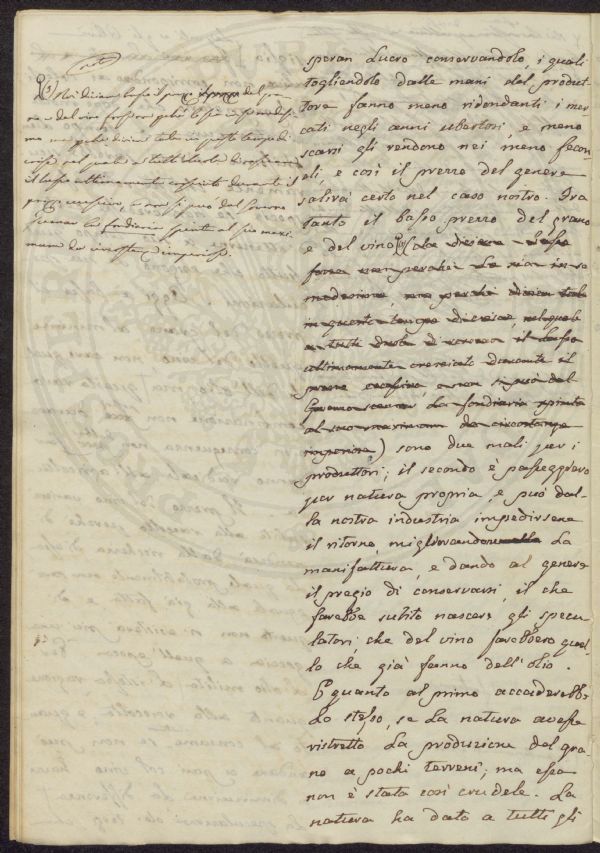 nota
(1) Noi diciam basso il prezzo del gra-
no e del vino
ma perché diciam tale in questi tempi di
crisi nel quale a tutti duole
il lusso ultimamente cresciuto durante il
prezzo eccessivo, e non si può dal Governo
scemar la fondiaria spinta al suo maxi-
mum da circostanze imperiose.
speran Lucro conservandolo, i quali
togliendolo dalle mani del produt-
tore fanno meno ridondanti i mer-
cati negli anni ubertosi, e meno
scarsi gli rendono nei meno fecon-
di, e così il prezzo del genere
salirà certo nel caso nostro. Fra
tanto il basso prezzo del grano
e del vino (1) (Lo
non perché Lo sia in se
medesimo ma perché diciam tale
in questi tempi di crisi, nel quale
a tutti duole di scemar il Lusso
ultimamente cresciuto durante il
prezzo eccessivo, e non si può dal
Governo scemar La fondiaria spinta
al suo maximum da circostanze
imperiose) sono due mali per i
produttori; il secondo è passeggiero
per natura propria, e può dal-
la nostra industria impedirsene
il ritorno, migliorando La
manifattura, e dando al genere
il pregio di conservarsi, il che
farebbe subito nascere gli specu-
latori, che del vino farebbero quel-
lo che già fanno dell'olio.
E quanto al primo accaderebbe
Lo stesso, se La natura avesse
ristretto La produzione del gra-
no a pochi terreni; ma essa
non è stata così crudele. La
natura ha dato a tutti gli